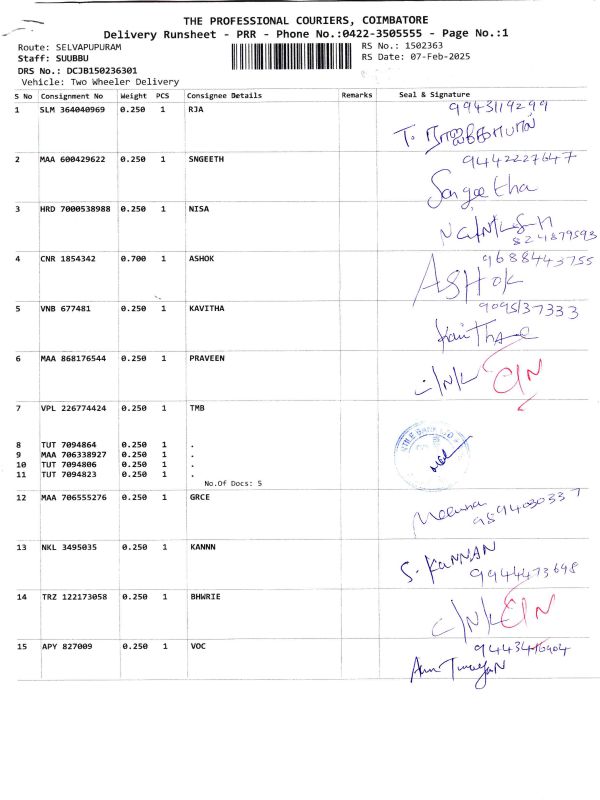 THE PROFESSIONAL COURIERS, COIMBATORE
Delivery Runsheet - PRR - Phone No.:0422-3505555 - Page No.:1
Route: SELVAPUPURAM RS No.: 1502363
Staff: SUUBBU RS Date: 07-Feb-2025
DRS No.: DCJB150236301
Vehicle: Two Wheeler Delivery
S No Consignment No Weight PCS Consignee Details Remarks Seal & Signature
1 SLM 364040969 0.250 1 RJA 9943119299
T.
2 MAA 600429622 0.250 1 SNGEETH 9442227647
Sangeetha
3 HRD 7000538988 0.250 1 NISA
824879593
4 CNR 1854342 0.700 1 ASHOK 9688443755
ASHOK
5 VNB 677481 0.250 1 KAVITHA 9095137333
6 MAA 868176544 0.250 1 PRAVEEN
C/N/L C/N
7 VPL 226774424 0.250 1 TMB
8 TUT 7094864 0.250 1 .
9 MAA 706338927 0.250 1 .
10 TUT 7094806 0.250 1 .
11 TUT 7094823 0.250 1 .
No.Of Docs: 5
12 MAA 706555276 0.250 1 GRCE
Meena
9894030337
13 NKL 3495035 0.250 1 KANNN
S. KANNAN
9944473698
14 TRZ 122173058 0.250 1 BHWRIE
C/N/L C/N
15 APY 827009 0.250 1 VOC 9443416404